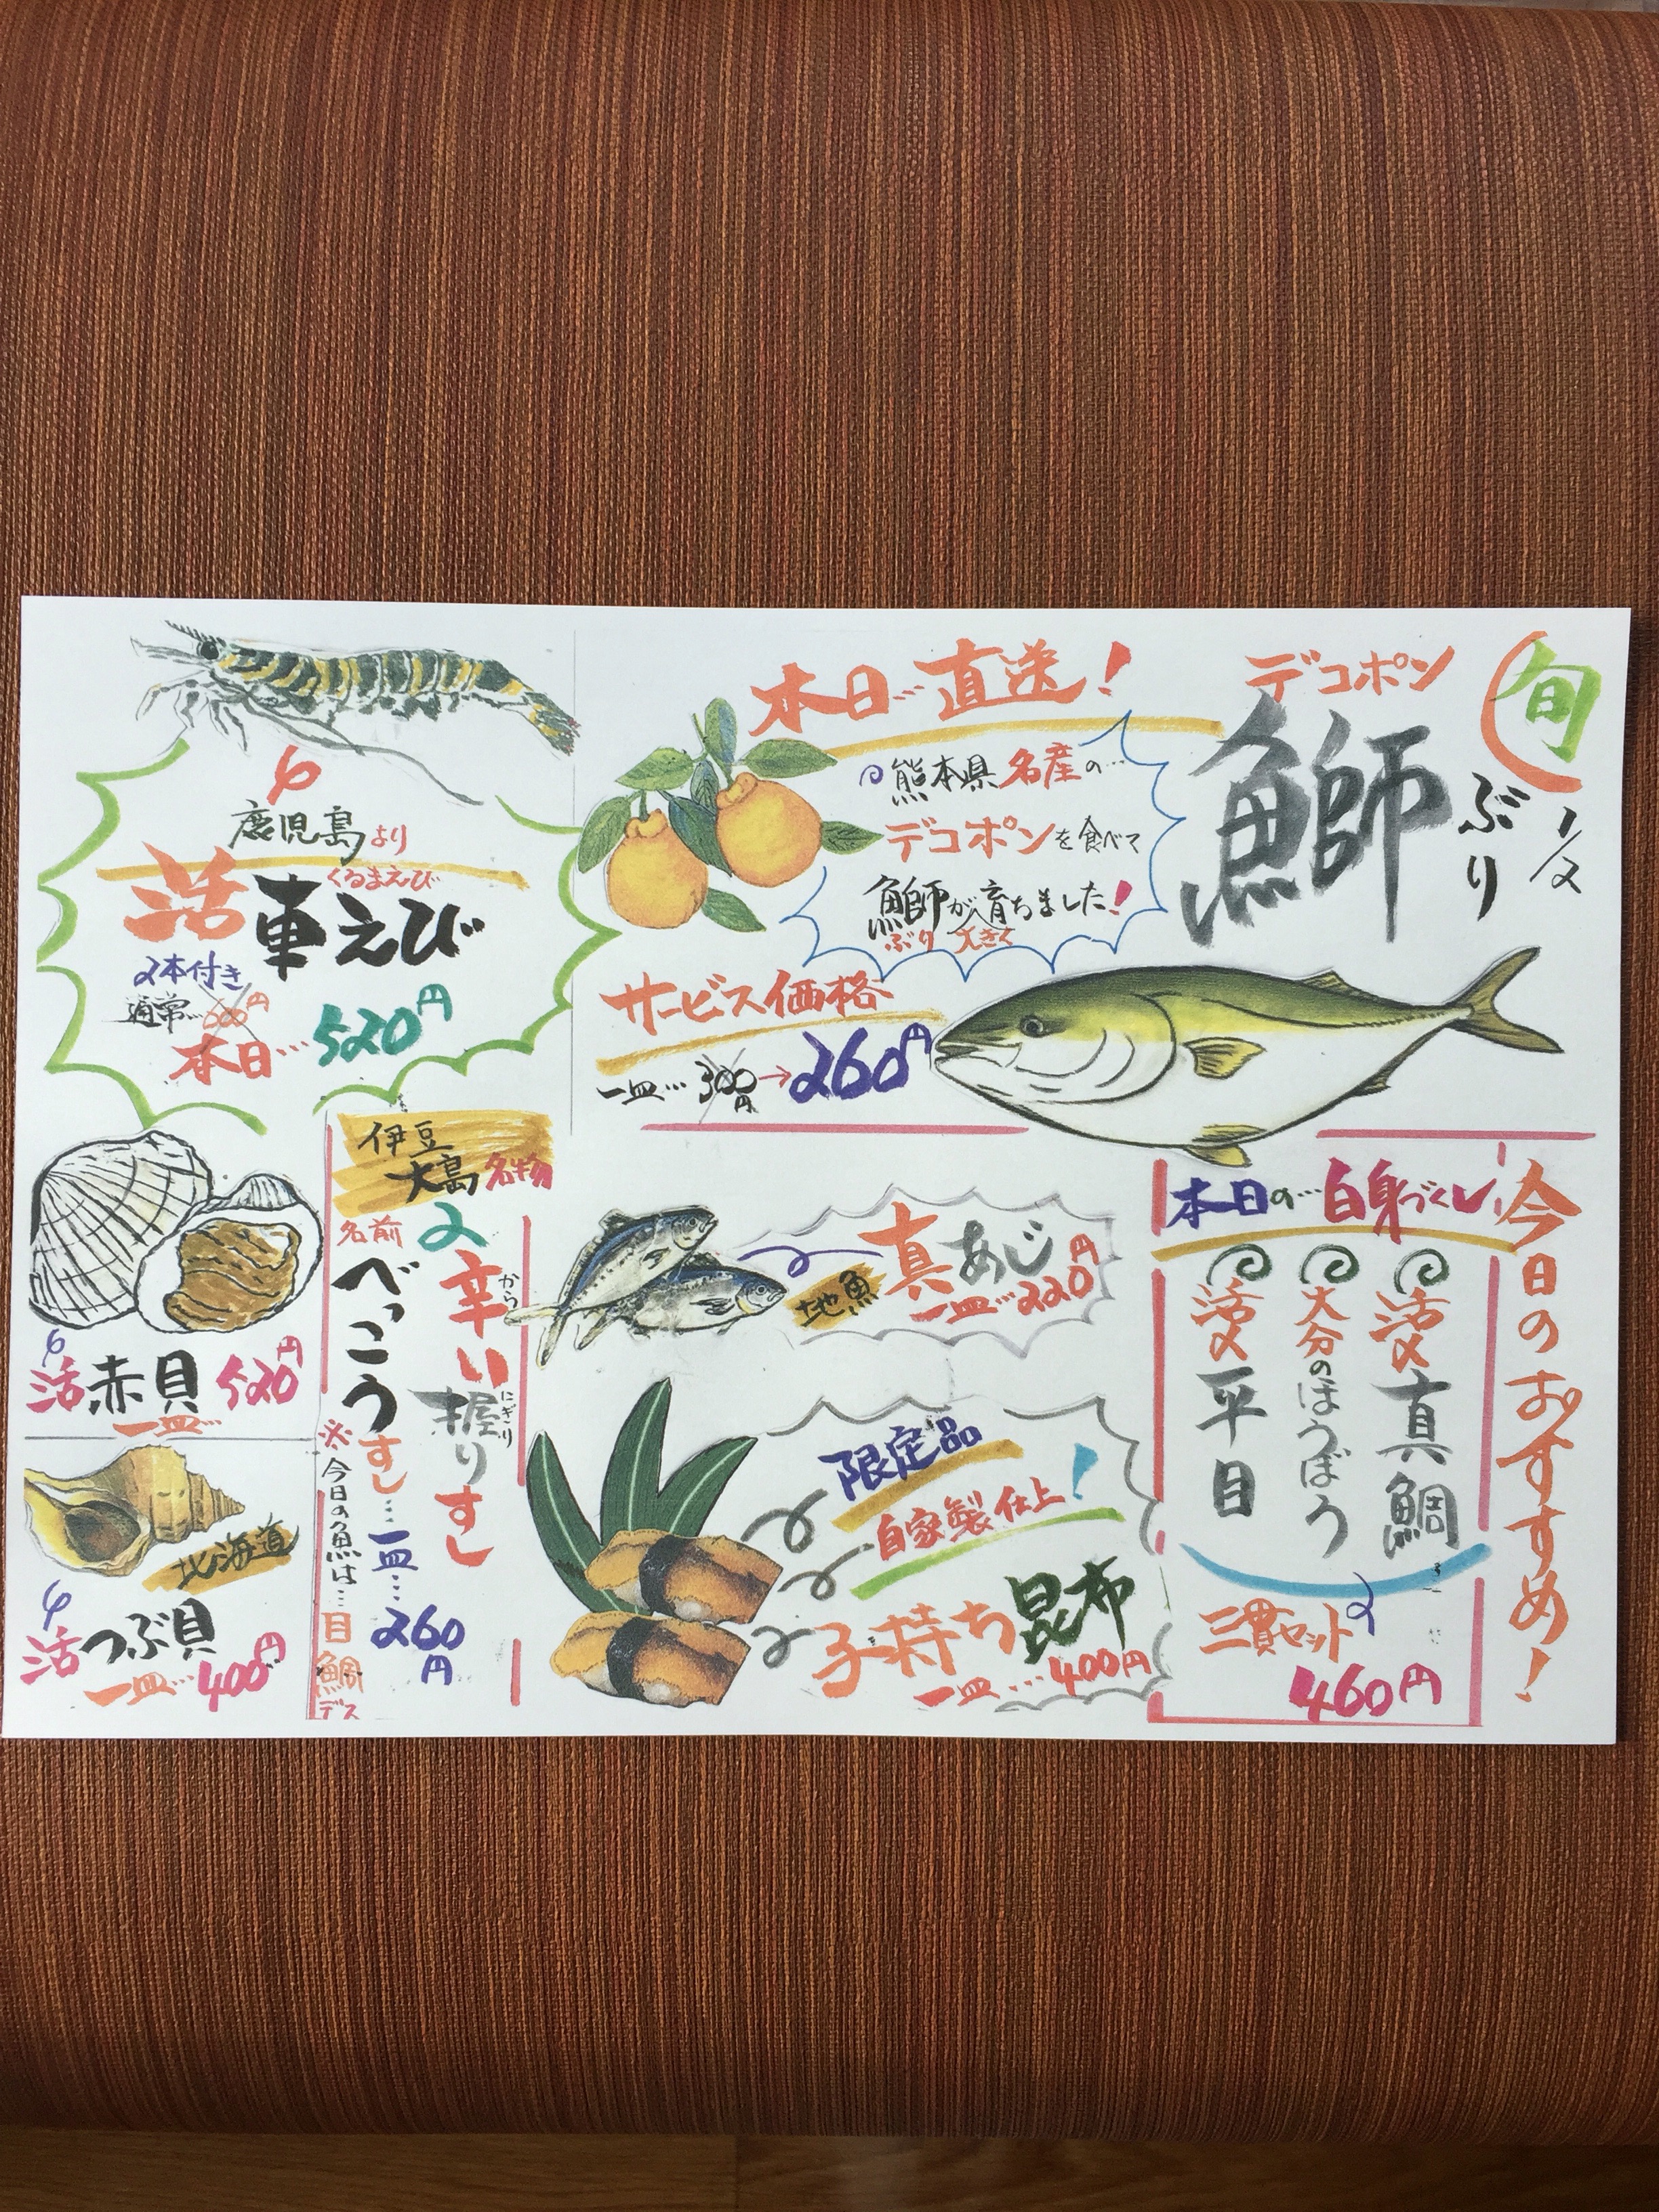 旬
1/2
デコポン
鰤
ぶり
本日…直送！
熊本県名産の…
デコポンを食べて
鰤が大きく育ちました！
ぶり
サービス価格
一皿…300円→260円
鹿児島より
くるまえび
活車えび
2本付き
通常…600円
本日…520円
今日のおすすめ！
本日の…白身づくし
活〆真鯛
大分のほうぼう
活〆平目
三貫セット
460円
地魚
真あじ
一皿…220円
限定品
自家製仕上！
子持ち昆布
一皿…400円
伊豆
大島名物
辛い握りすし
から
にぎり
名前
べっこうすし…一皿…260円
※今日の魚は…目鯛デス
活赤貝 520円
一皿…
北海道
活つぶ貝
一皿…400円